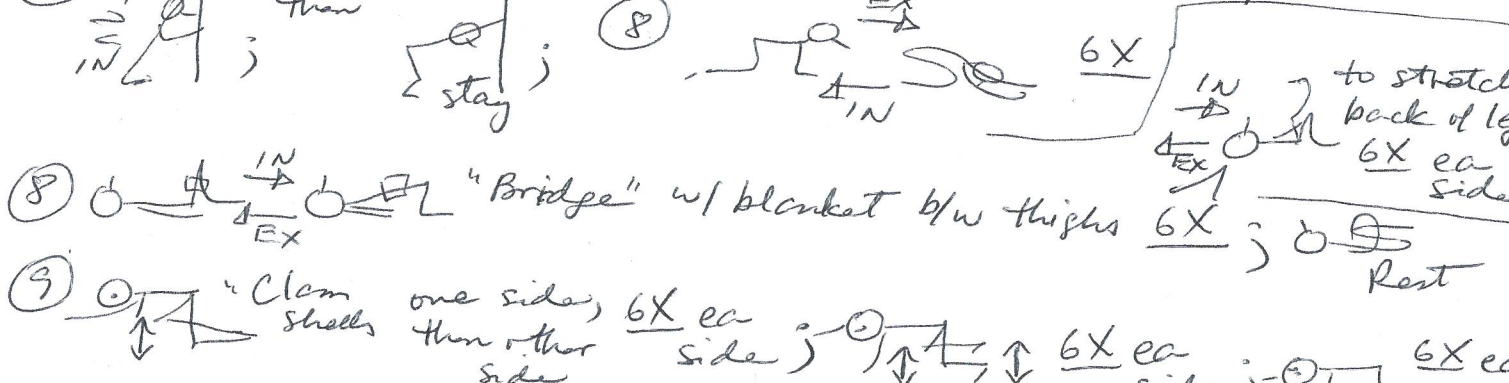 then
IN
;
stay
;
8
EX
IN
6X
IN
EX
to stretch
back of leg
6X ea
side
8
IN
EX
"Bridge" w/ blanket b/w thighs 6X ;
Rest
9
"Clam
shells
one side,
then other
side
6X ea
side ;
6X ea
;
6X ea